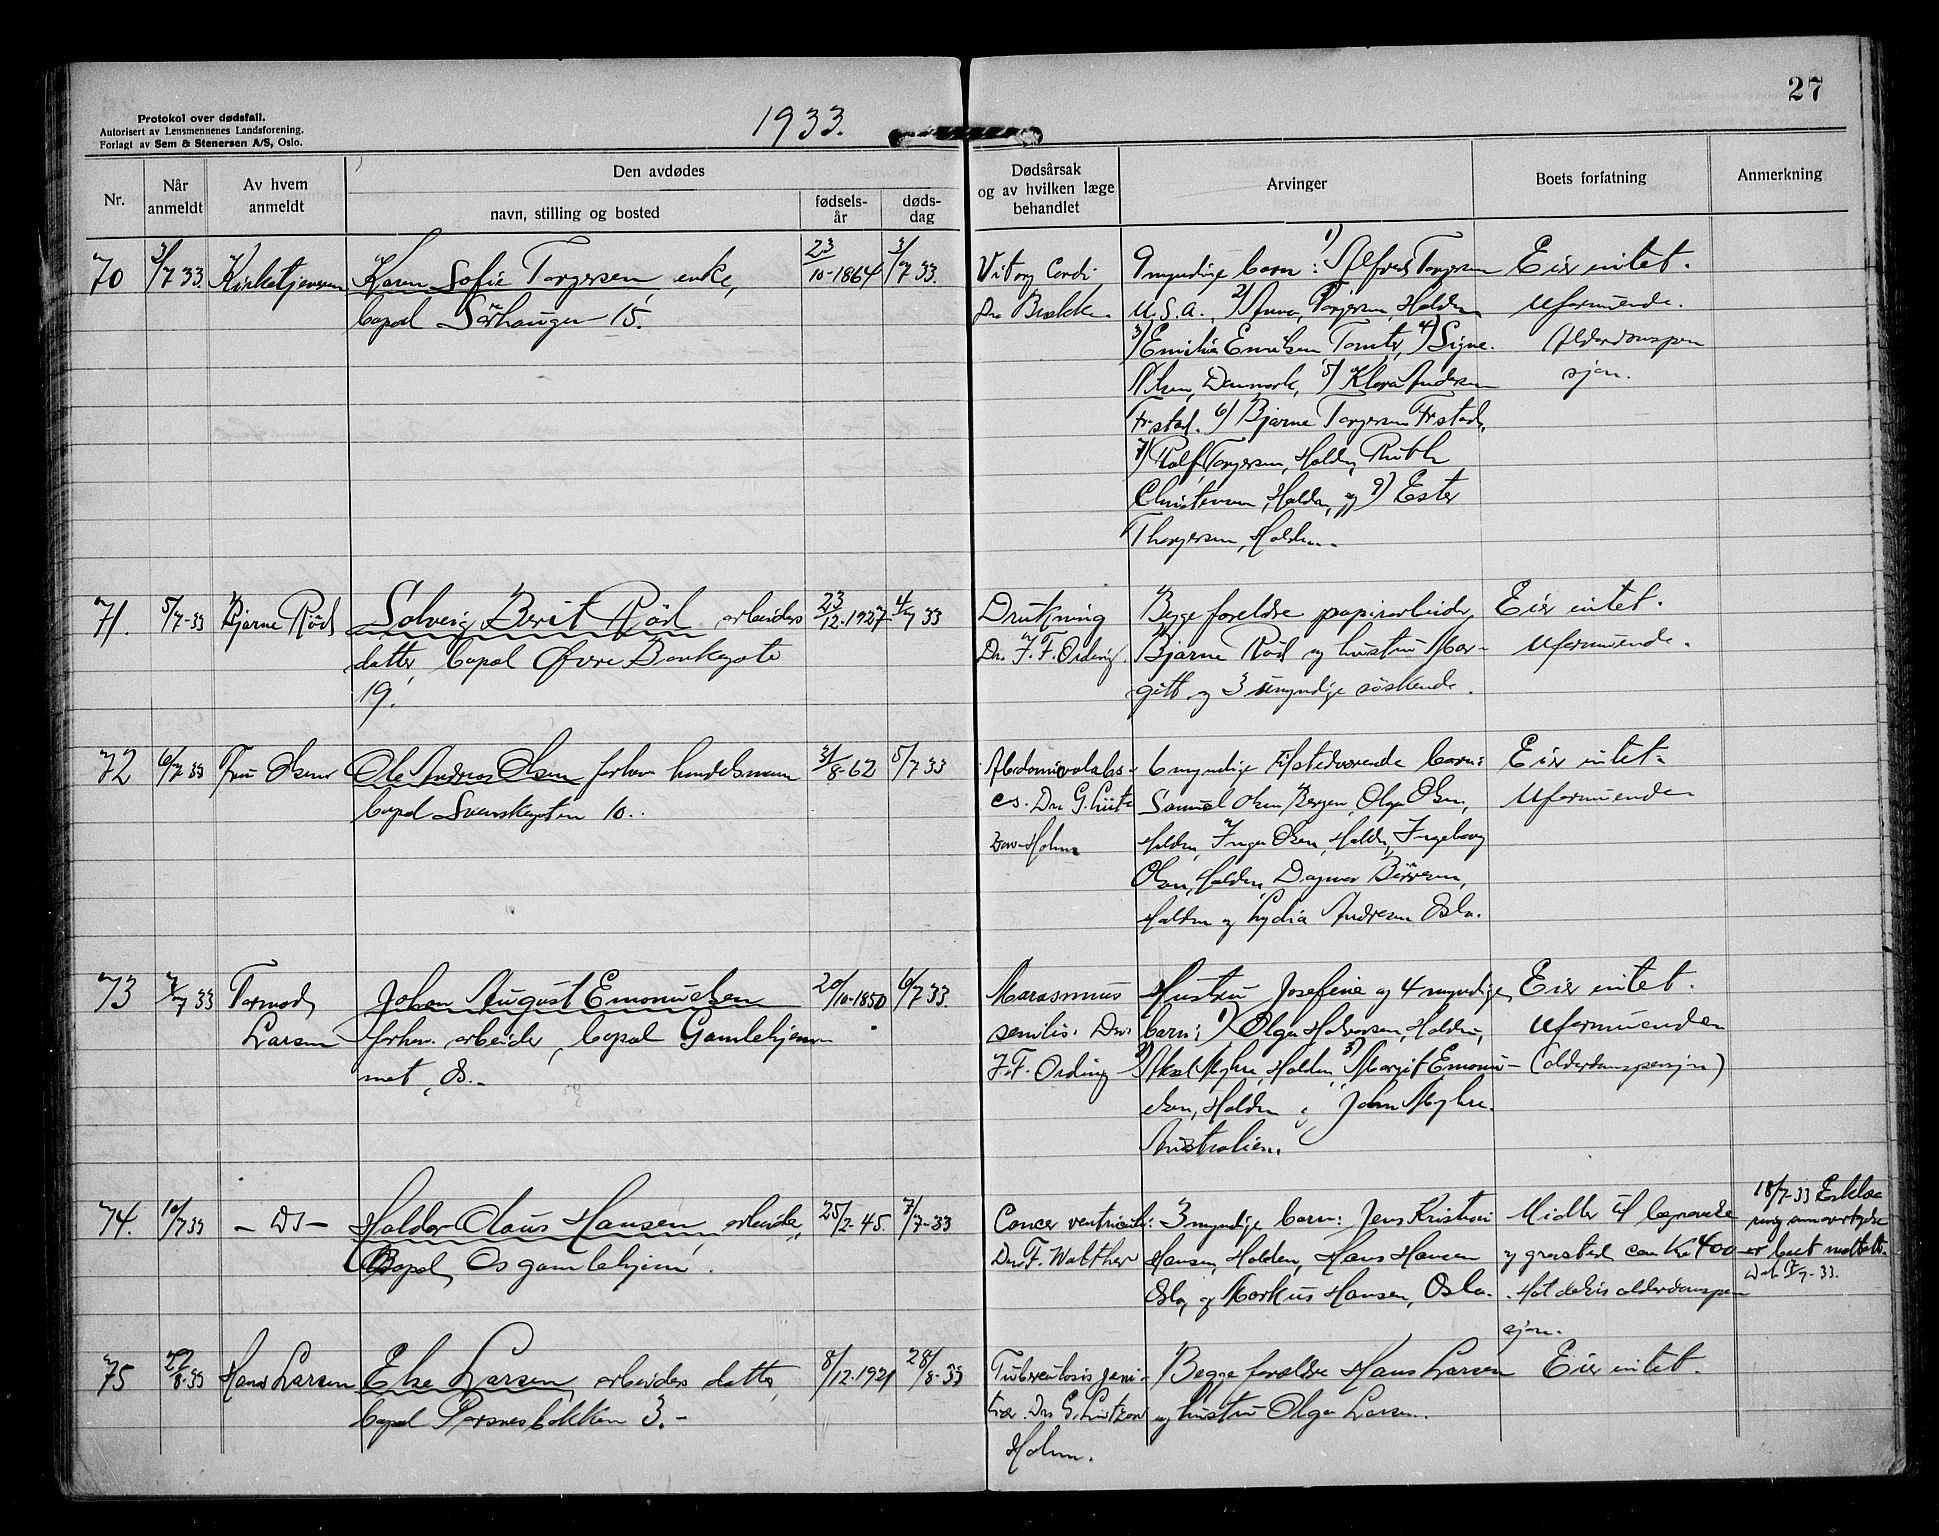 27
Protokol over dødsfall.
Autorisert av Lensmennenes Landsforening.
Forlagt av Sem & Stenersen A/S, Oslo.
1933.
Nr.
Når anmeldt
Av hvem anmeldt
Den avdødes
navn, stilling og bosted
fødsels-år
døds-dag
Dødsårsak og av hvilken læge behandlet
Arvinger
Boets forfatning
Anmerkning
70
3/7 33.
Kirketjeneren
Karen Sofie Torgersen, enke,
bopæl Sørhaugen 15.
23/10-1864
3/7 33.
Vit. org. Cordi.
Dr. Brække
9 myndige barn: 1) Alfred Torgersen
U.S.A., 2) Anna Torgersen, Halden
3) Emilie Tomter, 4) Signe
Olsen, Danmark, 5) Klara Andersen
Fr.stad. 6) Bjarne Torgersen Fr.stad,
7) Ralf Torgersen, Halden, Ruth
Christensen, Halden, og 9) Ester
Thorgersen, Halden.
Eier intet.
Uformuende.
Alderdomspen
sjon.
71.
5/7-33
Bjarne Rød
Solveig Berit Rød, arbeiders
datter, bopæl Øvre Bankegate
19.
23/12-1927
4/7 33
Drukning
Dr. F. F. Ording.
Begge foreldre papirarbeider
Bjarne Rød og hustru Mar-
gitt og 3 umyndige søskende.
Eier intet.
Uformuende.
72
6/7 33
Fru Olsen
Ole Andreas Olsen forhen handelsmann
bopæl Svenskegaten 10.
3/8-62
5/7 33
Abdominalabs-
es. Dr. G. Lüt
zow-Holm
6 myndige tilstedværende barn:
Samuel Olsen Bergen, Olga Olsen,
Halden, Inga Olsen, Halden, Ingeborg
Olsen, Halden, Dagmar Børresen,
Halden og Lydia Andresen Oslo.
Eier intet.
Uformuende
73
7/7 33
Tormod
Larsen
Johan August Emanuelsen
forhen. arbeider, bopæl Gamlehjem
met, Os.
20/10-1850
6/7 33.
Marasmus
senilis. Dr.
F. F. Ording
Hustru Josefine og 4 myndige
barn: 1) Olga Halvorsen, Halden,
2) Aksel Myhre, Halden, 3) Margit Emanu-
elsen, Halden, John Myhre.
Australien.
Eier intet.
Uformuende
(alderdomspensjon)
74.
10/7 33
- Ds -
Haldor Claus Hansen, arbeider,
Bopæl, Os gamlehjem.
25/2-45.
7/7-33
Cancer ventriculi:
Dr. F. Walther
3 myndige barn: Jens Kristian
Hansen, Halden, Hans Hansen
Oslo, og Markus Hansen, Oslo.
Midler til begravelse
og gravsted ca. kr 400
Hat delvis alderdomspen
sjon.
18/7-33 Erklæ
ring om overtagelse
er boet mottatt.
75
29/8-33
Hans Larsen
Else Larsen, arbeiders datter,
bopæl Porsnesbakken 3.-
8/12-1921
28/8-33
Tuberculosis
Dr. G. Lützow
Holm.
Begge foreldre Hans Larsen
og hustru Olga Larsen.
Eier intet.